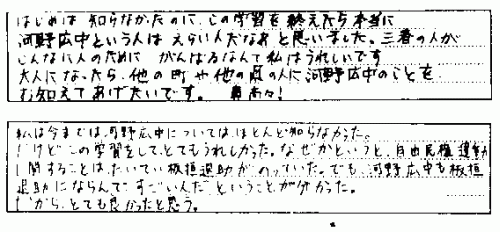 はじめは 知らなかったのに、この学習を終えたら本当に
河野広中という人は えらい人だなあ と思いました。三春の人が
こんなに人のために がんばるなんて私はうれしいです
大人になったら、他の町や他の県の人に河野広中のことを
お知えてあげたいです。 鼻高々!
私は今までは、河野広中については、ほとんど知らなかった。
だけどこの学習をして、とてもうれしかった。なぜかというと、自由民権運動
に関することは、たいてい板垣退助が、のっていた。でも、河野広中も板垣
退助にならんで すごい人だ ということが分かった。
だから、とても良かったと思う。